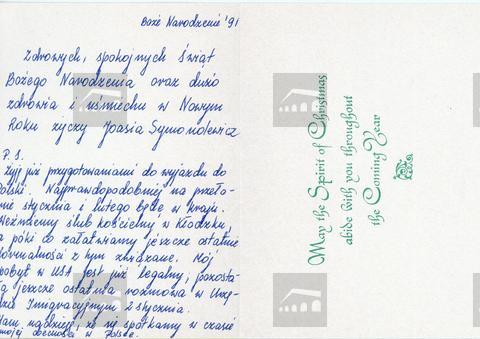 Boże Narodzenie '91
Zdrowych, spokojnych Świąt
Bożego Narodzenia oraz dużo
zdrowia i uśmiechu w Nowym
Roku życzy Joasia Symonolewicz
P.S.
Żyję już przygotowaniami do wyjazdu do
Polski. Najprawdopodobniej na przeło-
mie stycznia i lutego będę w kraju.
Weźmiemy ślub kościelny w Kłodzku,
a póki co załatwiamy jeszcze ostatnie
formalności z tym związane. Mój
pobyt w USA jest już legalny, pozosta-
ła jeszcze ostatnia rozmowa w Urzę-
dzie Imigracyjnym 2 stycznia.
Mam nadzieję, że się spotkamy w czasie
mojej obecności w Polsce.
May the Spirit of Christmas
abide with you throughout
the Coming Year